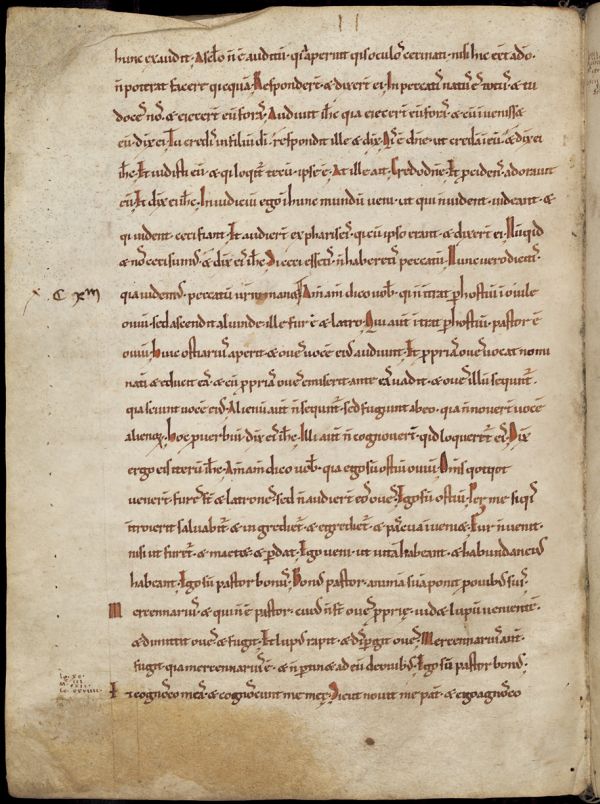 hunc exaudit · A sc̄lo n̄ ē auditū · qͥa aperuit qͥs oculoſ cecinati · niſi hic eēt a dō ·
n̄ poterat facere qͥcquā · Reſpondert̄ & dixert̄ ei · In peccatiſ natuſ eſ totuſ · & tu
doceſ noſ · & eiecert̄ eū foraſ · Audiuit ih̄c qͥa eiecert̄ eū foraſ · & cū inueniſſet
eū · dix ei · Tu crediſ in filiū dī · reſpondit ille & dix · Qͥſ ē dn̄e · ut credā in eū · & dix ei
ih̄c · Et uidiſti eū · & qͥ loqͥt̄ tecū · ipſe ē · At ille ait · Credo dn̄e · Et p̄cidenſ adorauit
eū · Et dix ei ih̄c · In iudiciū ego in hunc mundū ueni · ut qui n̄ uident · uideant · &
qui uident · ceci fiant · Et audiert̄ ex phariſeiſ · qͥ cū ipſo erant · & dixert̄ ei · Nūqͥd
& noſ ceci ſumuſ · & dix eiſ ih̄c · Si ceci eſſetiſ · n̄ haberetiſ peccatū · Nunc uero dicitiſ ·
qͥa uidemuſ · peccatū ur̄m manet · Am̄ am̄ dico uob̄ · qͥ n̄ intrat p̄ hoſtiū in ouile
ouiū · ſed aſcendit aliunde · ille fur ē & latro · Qui aut̄ intrat p̄ hoſtiū · paſtor ē
ouiū · huic oſtiariuſ aperit · & oueſ uocē eiuſ audiunt · Et p̄priaſ oueſ uocat nomi
nati & educit eaſ · & cū p̄priaſ oueſ emiſerit · ante eaſ uadit · & oueſ illū ſequunt̄ ·
qͥa ſciunt uocē eiuſ · Alienū aut̄ n̄ ſequunt̄ · ſed fugiunt ab eo · qͥa n̄ nouert̄ uocē
alienoꝝ · Hoc p̄uerbiū · dix eiſ ih̄c · Illi aut̄ n̄ cognouert̄ · qͥd loqueret̄ eiſ · Dix
ergo eiſ iterū ih̄c · Am̄ am̄ dico uob̄ · qͥa ego ſū oſtiū ouiū · Om̄s qͦtqͦt
uenert̄ · fureſ ſt̄ & latroneſ · ſed n̄ audiert̄ eoſ oueſ · Ego ſū oſtiū · Per me ſi qͥſ
introierit ſaluabit̄ · & ingrediet̄ & egrediet̄ · & paſcua inueniet · Fur n̄ uenit ·
niſi ut furet̄ · & mactet · & p̄dat · Ego ueni · ut uitā habeant · & habundanciuſ
habeant · Ego ſū paſtor bonuſ · Bonuſ paſtor · animā ſuā ponit p̄ ouib; ſuiſ ·
Mercennariuſ · & qui n̄ ē paſtor · cuiuſ n̄ ſt̄ oueſ p̄prie · uidet lupū uenientē ·
& dimittit oueſ & fugit · Et lupuſ rapit · & diſp̄git oueſ · Mercennariuſ aut̄
fugit · qͥa mercennariuſ ē · & n̄ p̄tinet ad eū de ouib; · Ego ſū paſtor bonuſ ·
Et cognoſco meaſ · & cognoſcunt me meę · Sicut nouit me pat̄ · & ego agnoſco